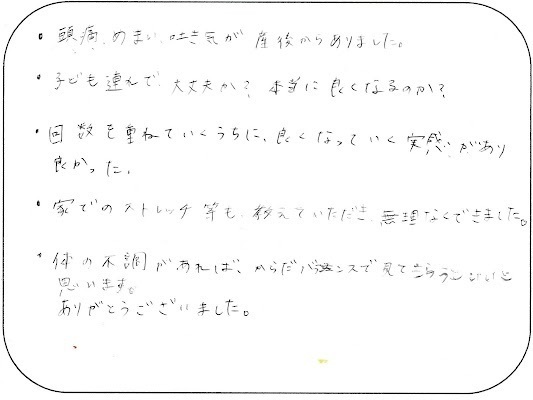 ・頭痛、めまい、吐き気が産後からありました。
・子ども連れで、大丈夫か？本当に良くなるのか？
・回数も重ねていくうちに、良くなっていく実感があり
良かった。
・家でのストレッチ等も、教えていただき、無理なくできました。
・体の不調があれば、からだバランスで見てもらう
思います。
ありがとうございました。